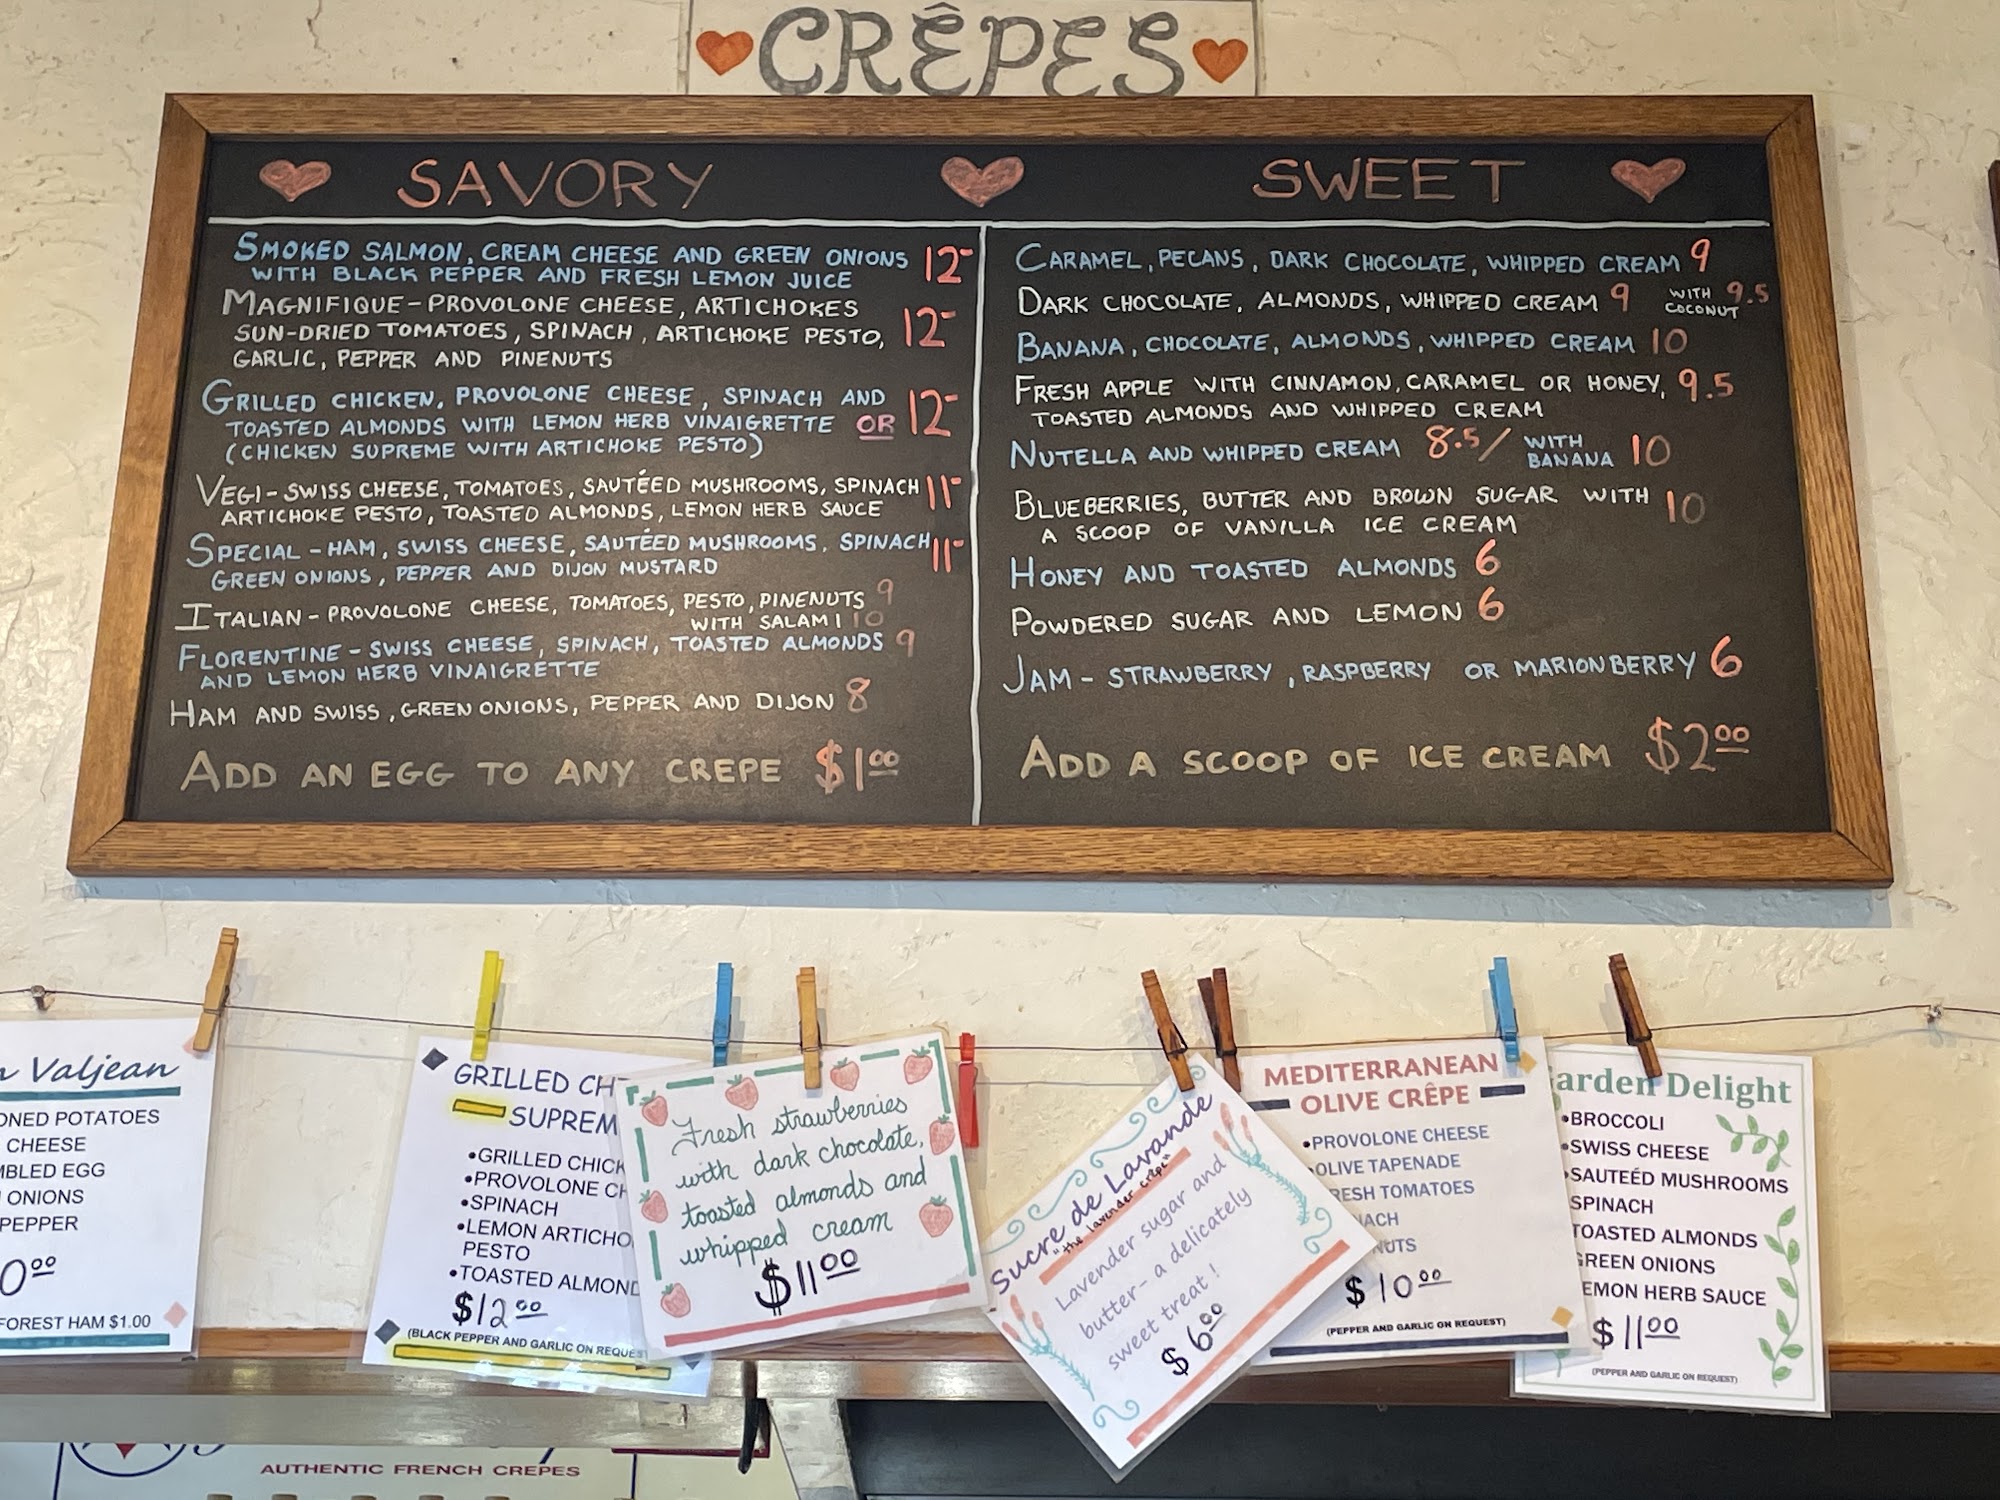 CRÊPES
SAVORY
SMOKED SALMON, CREAM CHEESE AND GREEN ONIONS 12-
WITH BLACK PEPPER AND FRESH LEMON JUICE
MAGNIFIQUE - PROVOLONE CHEESE, ARTICHOKES
SUN-DRIED TOMATOES, SPINACH, ARTICHOKE PESTO, 12-
GARLIC, PEPPER AND PINENUTS
GRILLED CHICKEN, PROVOLONE CHEESE, SPINACH AND
TOASTED ALMONDS WITH LEMON HERB VINAIGRETTE OR 12-
(CHICKEN SUPREME WITH ARTICHOKE PESTO)
VEGI - SWISS CHEESE, TOMATOES, SAUTÉED MUSHROOMS, SPINACH 11-
ARTICHOKE PESTO, TOASTED ALMONDS, LEMON HERB SAUCE
SPECIAL - HAM, SWISS CHEESE, SAUTÉED MUSHROOMS, SPINACH 11-
GREEN ONIONS, PEPPER AND DIJON MUSTARD
ITALIAN - PROVOLONE CHEESE, TOMATOES, PESTO, PINENUTS 9
WITH SALAMI 10
FLORENTINE - SWISS CHEESE, SPINACH, TOASTED ALMONDS 9
AND LEMON HERB VINAIGRETTE
HAM AND SWISS, GREEN ONIONS, PEPPER AND DIJON 8
ADD AN EGG TO ANY CREPE $1.00
SWEET
CARAMEL, PECANS, DARK CHOCOLATE, WHIPPED CREAM 9
DARK CHOCOLATE, ALMONDS, WHIPPED CREAM 9 WITH COCONUT 9.5
BANANA, CHOCOLATE, ALMONDS, WHIPPED CREAM 10
FRESH APPLE WITH CINNAMON, CARAMEL OR HONEY, 9.5
TOASTED ALMONDS AND WHIPPED CREAM
NUTELLA AND WHIPPED CREAM 8.5 / WITH BANANA 10
BLUEBERRIES, BUTTER AND BROWN SUGAR WITH 10
A SCOOP OF VANILLA ICE CREAM
HONEY AND TOASTED ALMONDS 6
POWDERED SUGAR AND LEMON 6
JAM - STRAWBERRY, RASPBERRY OR MARIONBERRY 6
ADD A SCOOP OF ICE CREAM $2.00
n Valjean
ONED POTATOES
CHEESE
MBLED EGG
ONIONS
PEPPER
0.00
FOREST HAM $1.00
GRILLED CH
SUPREM
•GRILLED CHICK
•PROVOLONE CH
•SPINACH
•LEMON ARTICHO
PESTO
•TOASTED ALMOND
$12.00
(BLACK PEPPER AND GARLIC ON REQUES
Fresh strawberries
with dark chocolate,
toasted almonds and
whipped cream
$11.00
Sucre de Lavande
"the lavender crêpe"
Lavender sugar and
butter - a delicately
sweet treat!
$6.00
MEDITERRANEAN
OLIVE CRÊPE
•PROVOLONE CHEESE
•OLIVE TAPENADE
RESH TOMATOES
NACH
NUTS
$10.00
(PEPPER AND GARLIC ON REQUEST)
arden Delight
•BROCCOLI
•SWISS CHEESE
•SAUTEÉD MUSHROOMS
SPINACH
TOASTED ALMONDS
GREEN ONIONS
EMON HERB SAUCE
$11.00
(PEPPER AND GARLIC ON REQUEST)
AUTHENTIC FRENCH CREPES